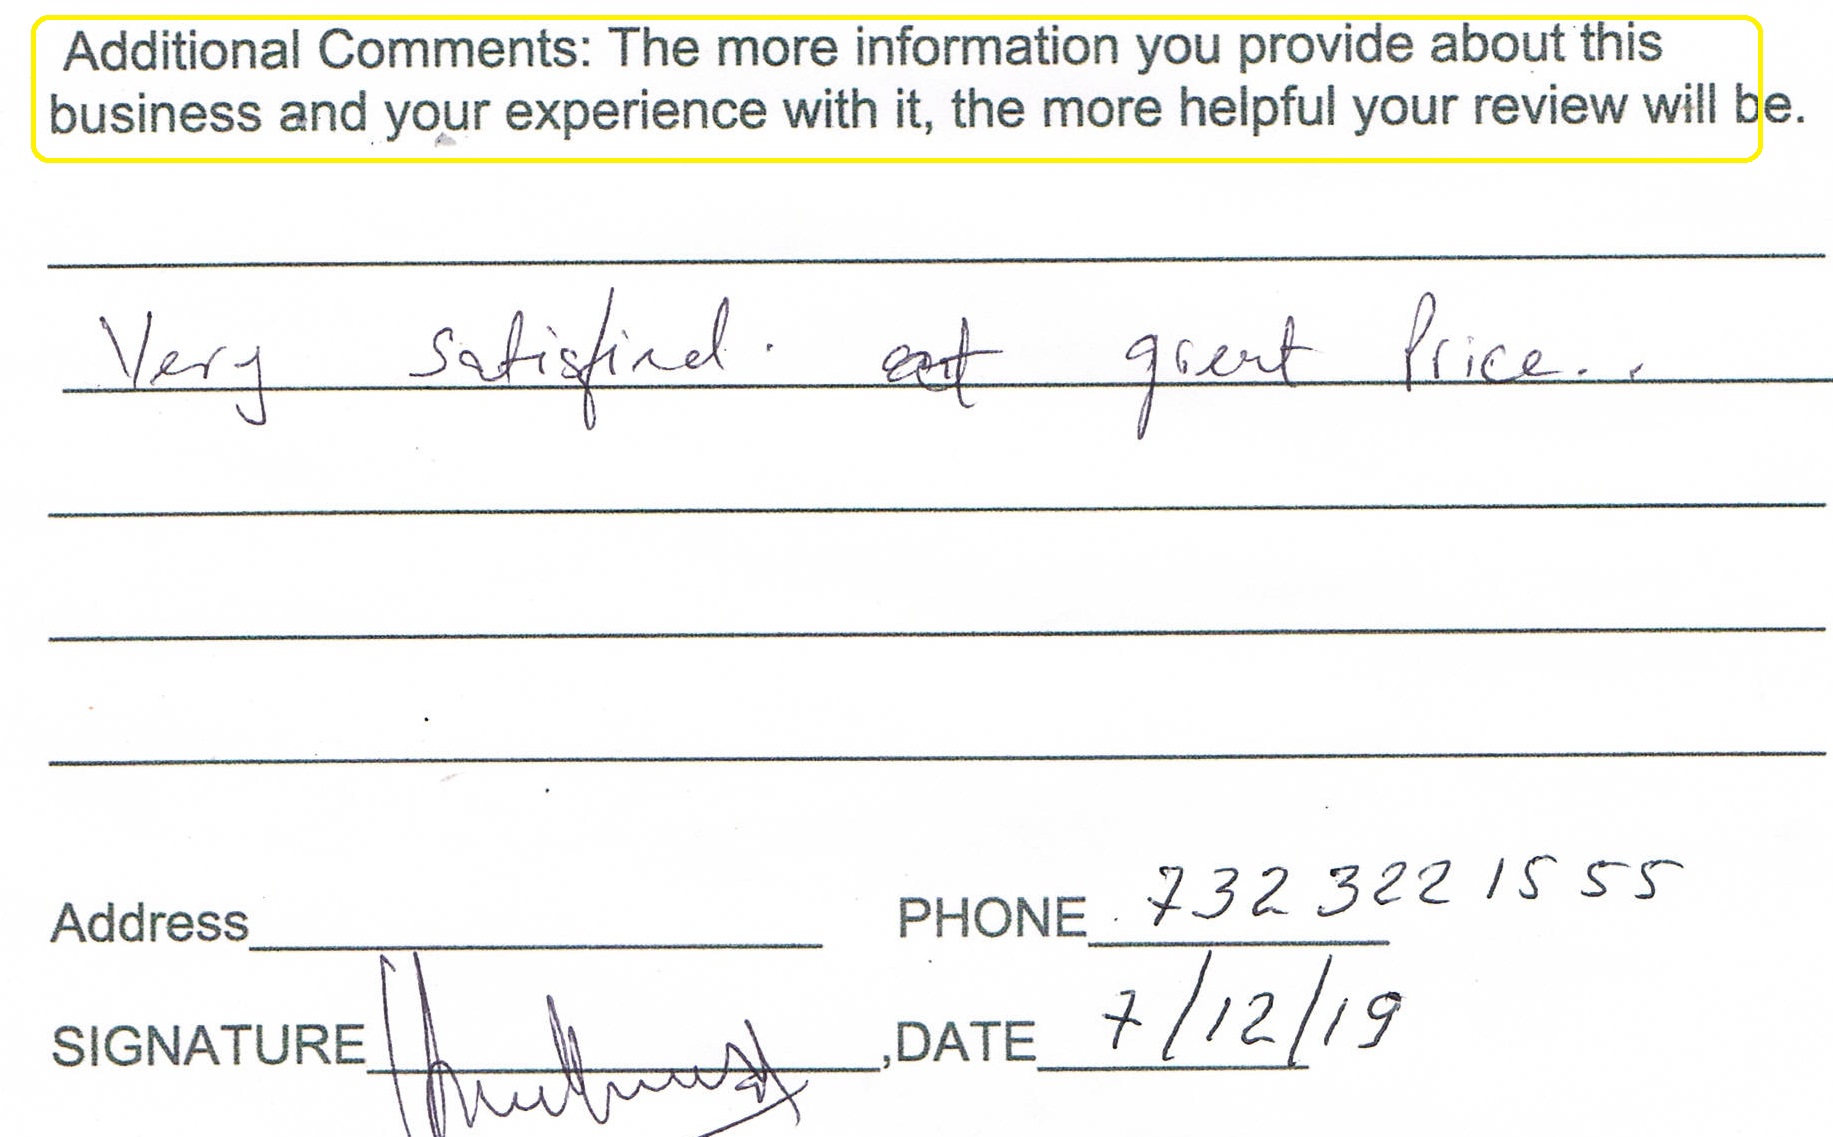 Additional Comments: The more information you provide about this
business and your experience with it, the more helpful your review will be.
Very satisfied. at great Price...
Address PHONE 732 322 1555
SIGNATURE ,DATE 7/12/19